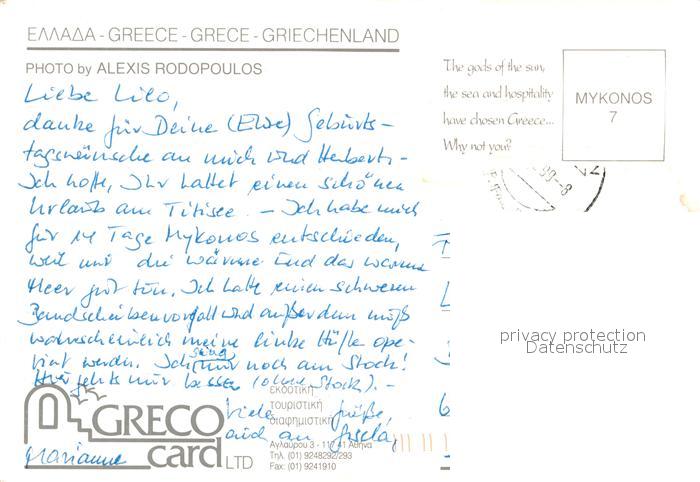 ΕΛΛΑΔΑ - GREECE - GRECE - GRIECHENLAND
PHOTO by ALEXIS RODOPOULOS
Liebe Lilo,
danke für Deine (Eure) Geburts-
tagswünsche an mich und Herbert. -
Ich hoffe, Ihr hattet einen schönen
Urlaub am Titisee. - Ich habe mich
für 14 Tage Mykonos entschieden,
weil mir die Wärme und das warme
Meer gut tun. Ich hatte einen schweren
Bandscheibenvorfall und außerdem muß
wahrscheinlich meine linke Hüfte ope-
riert werden. Ich nur noch am Stock!
Hier gehts mir besser (ohne Stock). -
Viele Grüße,
auch an Gisela,
Marianne
The gods of the sun,
the sea and hospitality
have chosen Greece...
Why not you?
MYKONOS
7
privacy protection
Datenschutz
GRECO
card LTD
εκδοτική
τουριστική
διαφημιστική
Αγλαύρου 3 - 117 41 Αθήνα
Τηλ. (01) 9248292/293
Fax. (01) 9241910